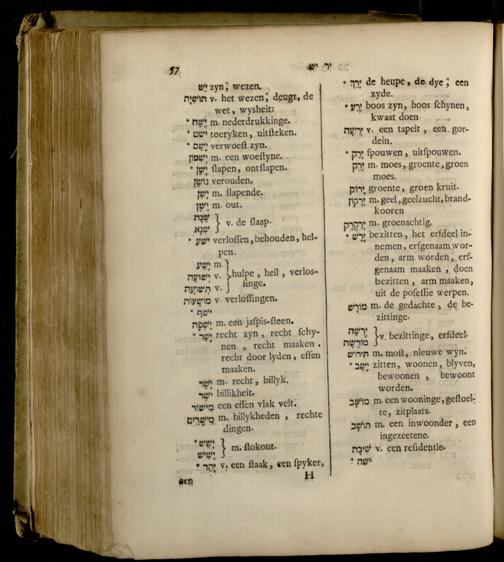 57 יר יש
* יָרֵךְ de heupe, de dye; een
zyde.
* יָרַע boos zyn, boos ſchynen,
kwaat doen
יְרִיעָה v. een tapeit, een gor-
dein.
* יָרַק ſpouwen, uitſpouwen.
יָרָק m. moes, groente, groen
moes.
יָרוֹק groente, groen kruit.
יֵרָקוֹן m. geel, geelzucht, brand-
kooren
יְרַקְרַק m. groenachtig.
* יָרַשׁ bezitten, het erfdeel in-
nemen, erfgenaam wor-
den, arm worden, erf-
genaam maaken, doen
bezitten, arm maaken,
uit de poſeſſie werpen.
מוֹרָשׁ m. de gedachte, de be-
zittinge.
יְרֻשָּׁה
מוֹרָשָׁה } v. bezittinge, erfdeel.
תִּירוֹשׁ m. moſt, nieuwe wyn.
* יָשַׁב zitten, woonen, blyven,
bewoonen, bewoont
worden.
מוֹשָׁב m. een wooninge, geſtoel-
te, zitplaats.
תּוֹשָׁב m. een inwoonder, een
ingezeetene.
שִׁיבָה v. een reſidentie.
ישה *
יֵשׁ zyn; wezen.
תּוּשִׁיָּה v. het wezen; deugt, de
wet, wysheit:
* יֶשַׁח m. nederdrukkinge.
* ישט toeryken, uitſteken.
* יָשַׁם verwoeſt zyn.
יְשִׁמוֹן m. een woeſtyne.
* יָשֵׁן ſlapen, ontſlapen.
נוֹשָׁן verouden.
יָשֵׁן m. ſlapende.
יָשָׁן m. out.
שֵׁנָה
שֵׁנָא } v. de ſlaap.
* ישע verloſſen, behouden, hel-
pen.
יֵשַׁע m
יְשׁוּעָה v.
תְּשׁוּעָה v. } hulpe, heil, verlos-
ſinge.
מוֹשָׁעוֹת v verlöſſingen.
* ישף
יָשְׁפֵה m. een jaſpis-ſteen.
* יָשַׁר recht zyn, recht ſchy-
nen, recht maaken.
recht door lyden, effen
maaken.
יָשָׁר m. recht, billyk.
יֹשֶׁר billikheit.
מִישׁוֹר een effen vlak velt.
מֵישָׁרִים m. billykheden, rechte
dingen.
* יָשֵׁשׁ
יָשִׁישׁ } m. ſtokout.
* יָתֵד v. een ſtaak, een ſpyker,
H een